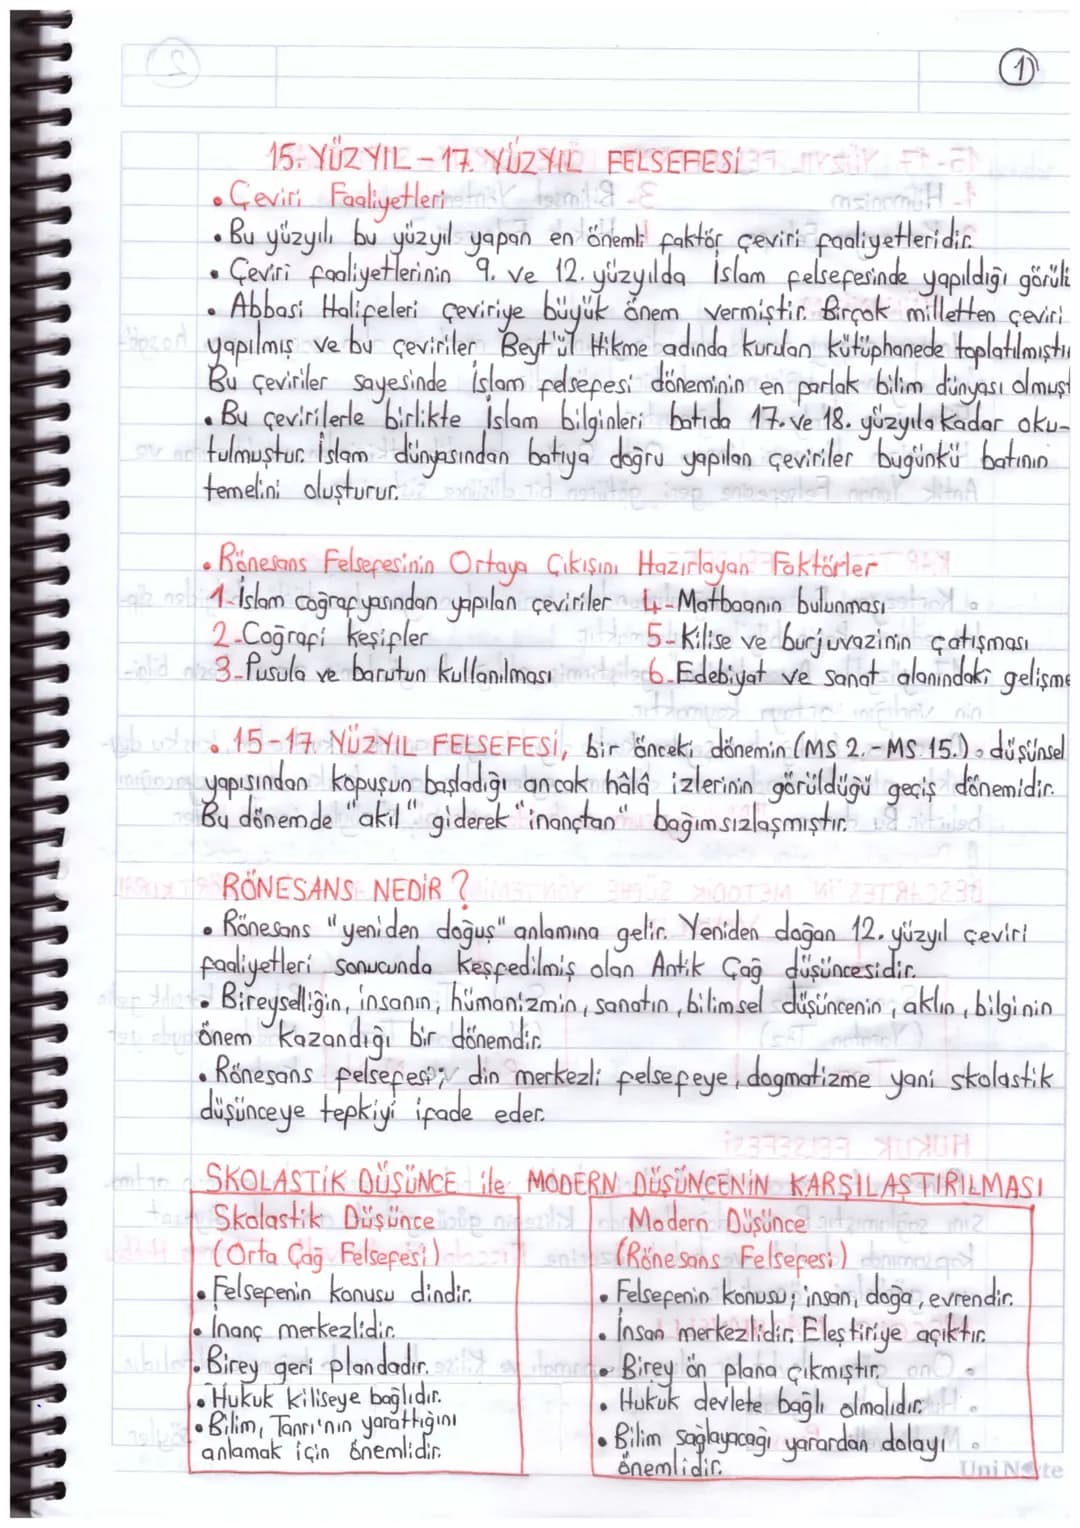 1
15. YÜZYIL - 17. YÜZYIL FELSEFESİ
• Çeviri Faaliyetleri
• Bu yüzyılı bu yüzyıl yapan en önemli faktör çeviri faaliyetleridir.
• Çeviri faaliyetlerinin 9. ve 12. yüzyılda İslam felsefesinde yapıldığı görülü
• Abbasi Halifeleri çeviriye büyük önem vermiştir. Birçok milletten çeviri
yapılmış ve bu çeviriler Beyt'ül Hikme adında kurulan kütüphanede toplatılmıştı
Bu çeviriler sayesinde İslam felsefesi döneminin en parlak bilim dünyası olmuşt
• Bu çevirilerle birlikte İslam bilginleri batıda 17. ve 18. yüzyıla kadar oku-
tulmuştur. İslam dünyasından batıya doğru yapılan çeviriler bugünkü batının
temelini oluşturur.
• Rönesans Felsefesinin Ortaya Çıkışını Hazırlayan Faktörler
1-İslam coğrafyasından yapılan çeviriler 4-Matbaanın bulunması
2-Coğrafi keşifler 5-Kilise ve burjuvazinin çatışması
3-Pusula ve barutun kullanılması 6-Edebiyat ve sanat alanındaki gelişme
• 15-17. YÜZYIL FELSEFESİ, bir önceki dönemin (MS 2.-MS 15.) düşünsel
yapısından kopuşun başladığı ancak hâlâ izlerinin görüldüğü geçiş dönemidir.
Bu dönemde "akıl" giderek "inançtan" bağımsızlaşmıştır.
RÖNESANS NEDİR?
• Rönesans "yeniden doğuş" anlamına gelir. Yeniden doğan 12. yüzyıl çeviri
faaliyetleri sonucunda keşfedilmiş olan Antik Çağ düşüncesidir.
• Bireyselliğin, insanın, hümanizmin, sanatın, bilimsel düşüncenin, aklın, bilginin
önem kazandığı bir dönemdir.
• Rönesans felsefesi; din merkezli felsefeye, dogmatizme yani skolastik
düşünceye tepkiyi ifade eder.
SKOLASTİK DÜŞÜNCE ile MODERN DÜŞÜNCENİN KARŞILAŞTIRILMASI
Skolastik Düşünce
(Orta Çağ Felsefesi)
• Felsefenin konusu dindir.
• İnanç merkezlidir.
• Birey geri plandadır.
• Hukuk kiliseye bağlıdır.
• Bilim, Tanrı'nın yarattığını
anlamak için önemlidir.
Modern Düşünce
(Rönesans Felsefesi)
• Felsefenin konusu; insan, doğa, evrendir.
• İnsan merkezlidir. Eleştiriye açıktır.
• Birey ön plana çıkmıştır.
• Hukuk devlete bağlı olmalıdır.
• Bilim sağlayacağı yarardan dolayı
önemlidir.
UniNote